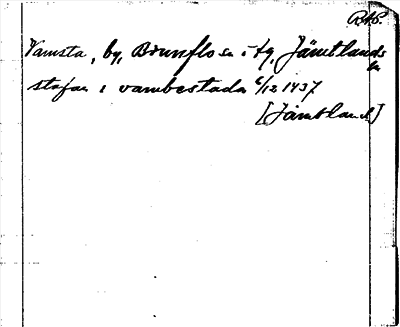 R.A.P.
Vamsta, by, Brunflo sn i fg, Jämtlands
ln
stafan i vambestada 6/12 1437
[Jämtland]